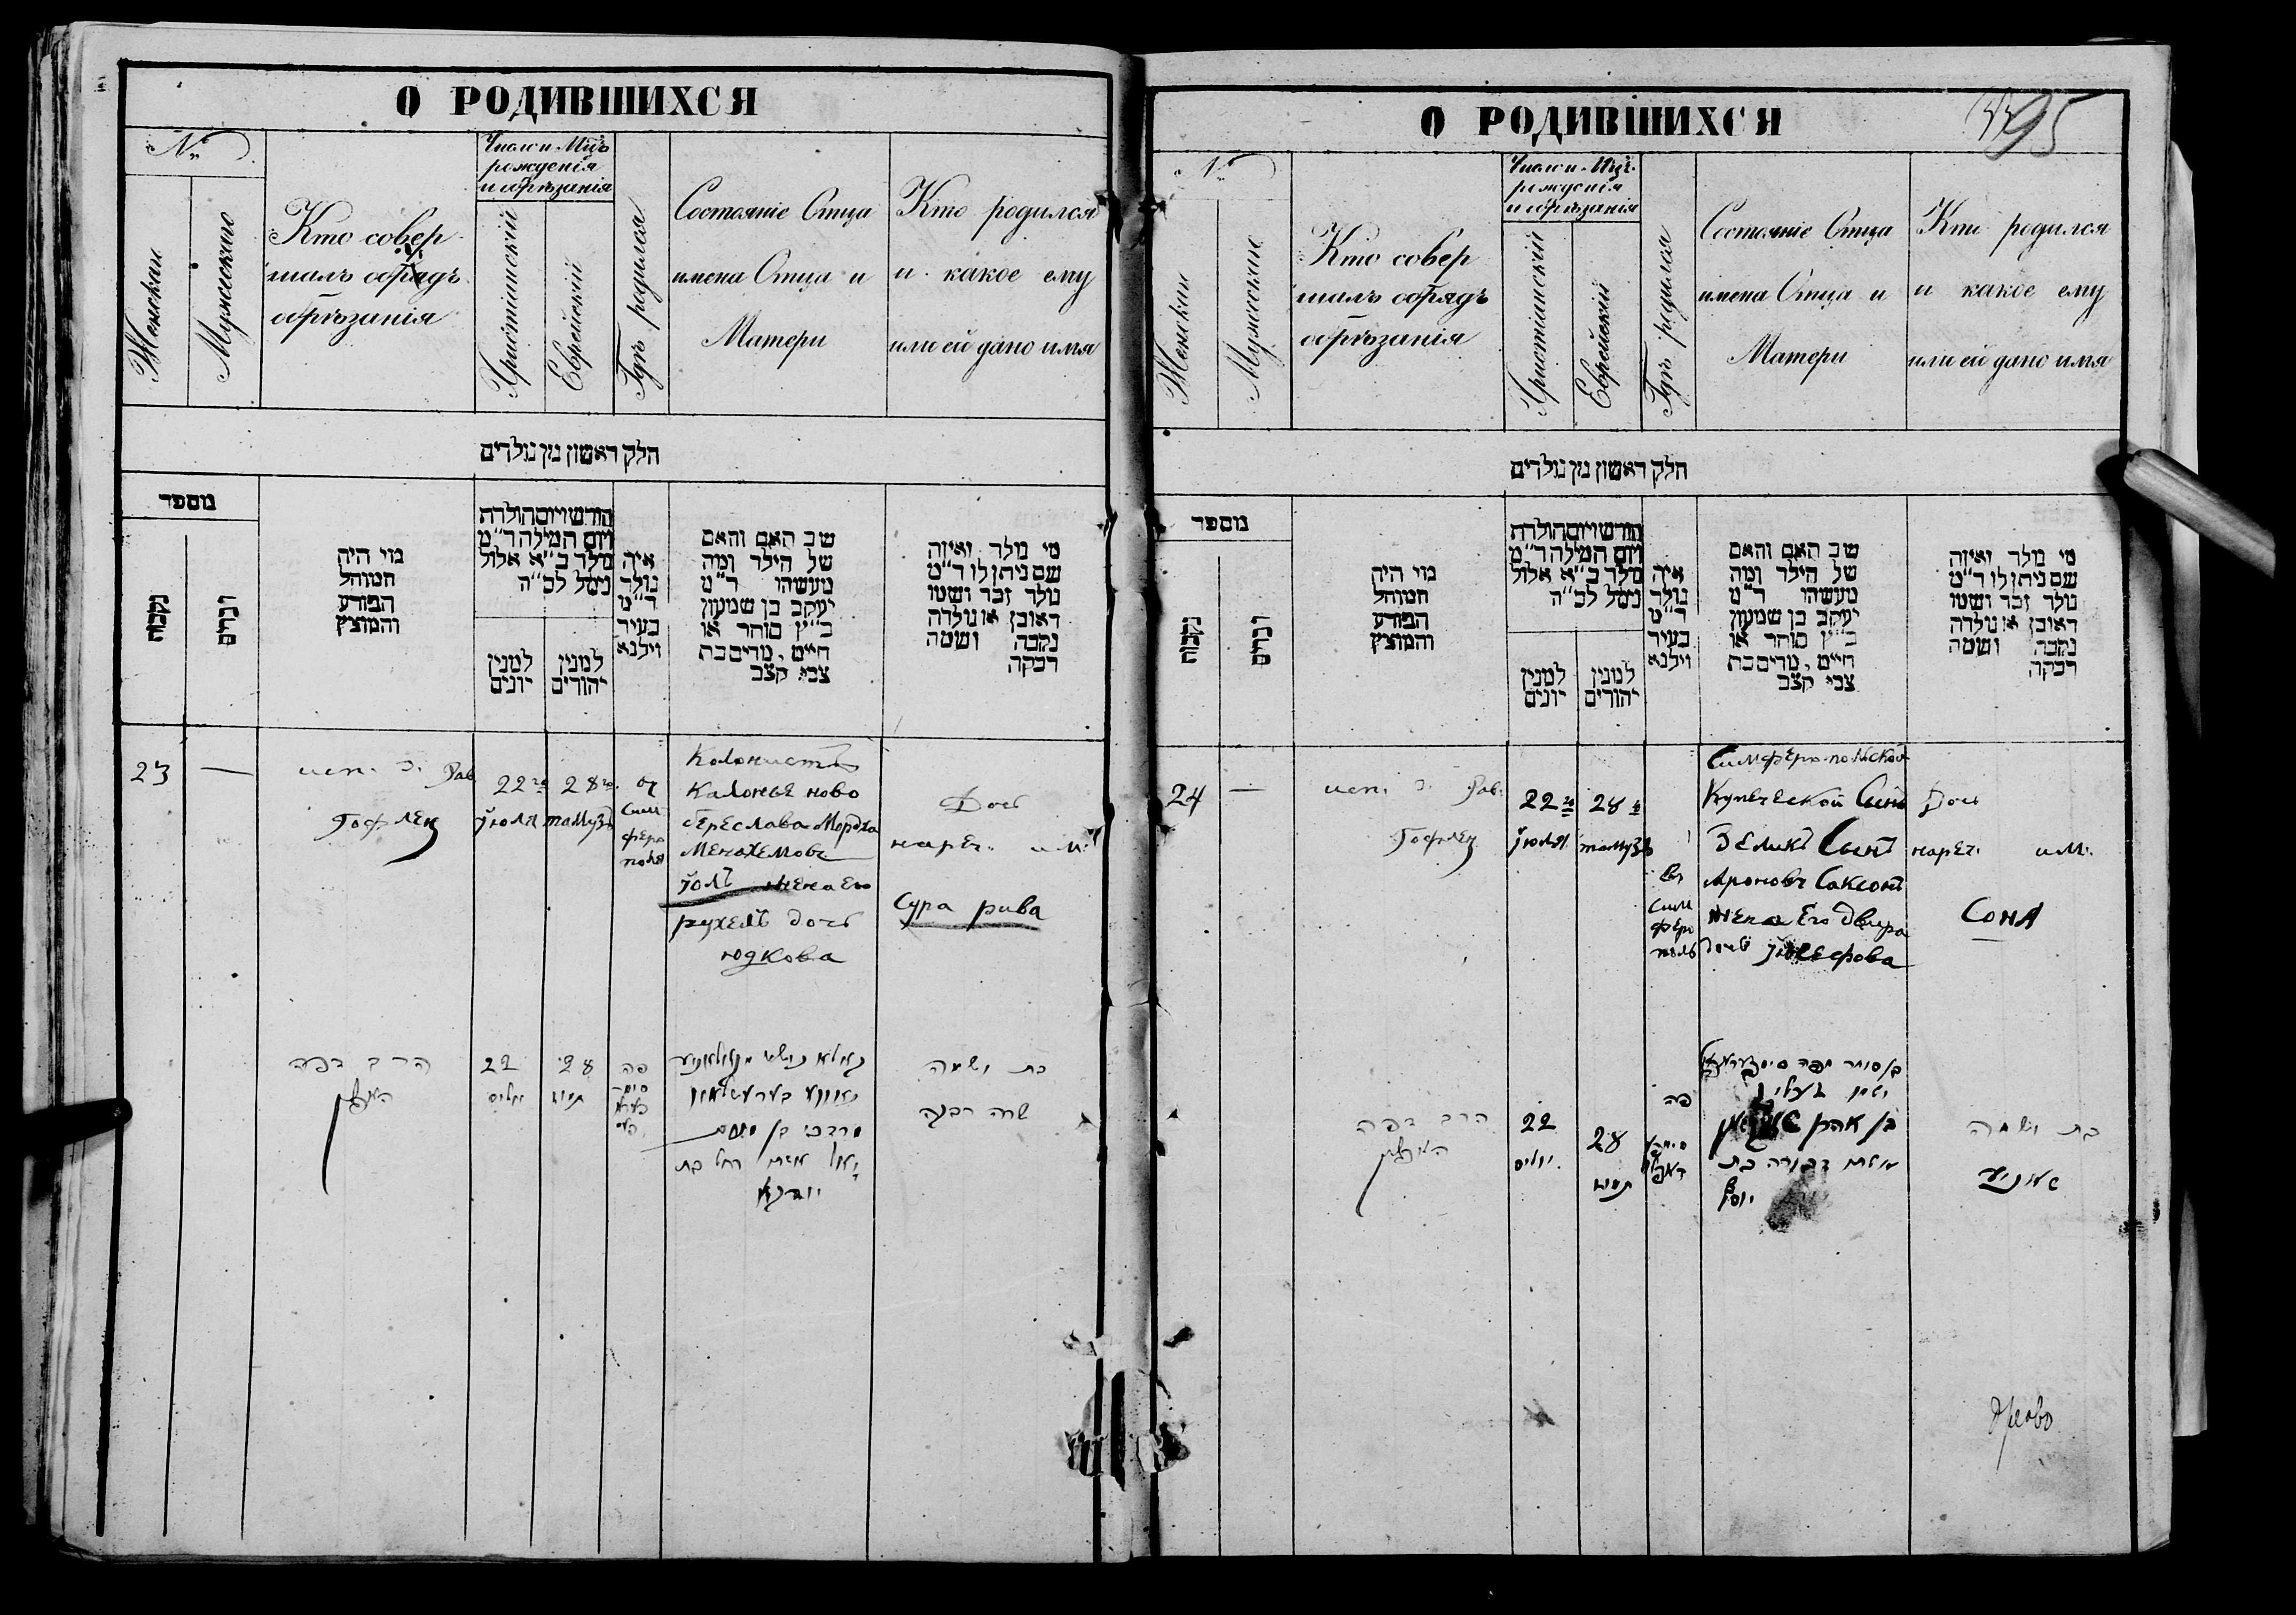 О РОДИВШИХСЯ
№
Женскаго
Мужескаго
Кто совер
шалъ обрядъ
обрѣзанія
Число и Мцъ
рожденія
и обрѣзанія
Христіанскій
Еврейскій
Гдѣ родился
Состояніе Отца
имена Отца и
Матери
Кто родился
и какое ему
или ей дано имя
חלק ראשון מן נולדים
מספר
נקבות
זכרים
מי היה
המוהל
הפורע
והמוצץ
חודש ויום הולדת
ויום המילה ד״מ
נולד ב״א אלול
נימל לב״ה
למנין
יונים
למנין
יהודים
איה
נולד
ד״מ
בעיר
ווילנא
שב האם והאם
של הילד ומה
מעשהו ד״מ
יעקב בן שמעון
כ״ץ סוחר או
חייט, מרים בת
צבי קצב
מי נולד ואיזה
שם ניתן לו ד״מ
נולד זכר ושמו
ראובן או נולדה
נקבה ושמה
רבקה
23 —
исп. д. Рав
Гофлен
22го
июля
28го
тамузъ
Сим
феро
поля
Колонистъ
Калоные ново
береслава Мордха
Менахемовъ
жена Его
рухель дочь
юдкова
Дочь
нареч. им.
Сура рива
הרב דפה
22
יוליס
28
תמוז
פה
סימ
מרדכי בן מנחם
אשתו רחל בת
יודקא
בת ושמה
שרה רבקה
О РОДИВШИХСЯ
95
№
Женскаго
Мужескаго
Кто совер
шалъ обрядъ
обрѣзанія
Число и Мцъ
рожденія
и обрѣзанія
Христіанскій
Еврейскій
Гдѣ родился
Состояніе Отца
имена Отца и
Матери
Кто родился
и какое ему
или ей дано имя
חלק ראשון מן נולדים
מספר
נקבות
זכרים
מי היה
המוהל
הפורע
והמוצץ
חודש ויום הולדת
ויום המילה ד״מ
נולד ב״א אלול
נימל לב״ה
למנין
יונים
למנין
יהודים
איה
נולד
ד״מ
בעיר
ווילנא
שב האם והאם
של הילד ומה
מעשהו ד״מ
יעקב בן שמעון
כ״ץ סוחר או
חייט, מרים בת
צבי קצב
מי נולד ואיזה
שם ניתן לו ד״מ
נולד זכר ושמו
ראובן או נולדה
נקבה ושמה
רבקה
24 —
исп. д. Рав.
Гофлен
22го
июля
28го
тамузъ
Въ
Сим
феро
поль
Симферопольской
Купеческой Сынъ
Зеликъ Сынъ
Ароновъ Саксонъ
жена Его Двира
дочь Юосефова
Дочь
нареч. им.
Сона
הרב דפה
22
יוליס
28
תמוז
פה
בן סוחר
בן אהרן
אשתו דבורה בת
יוסף
בת ושמה